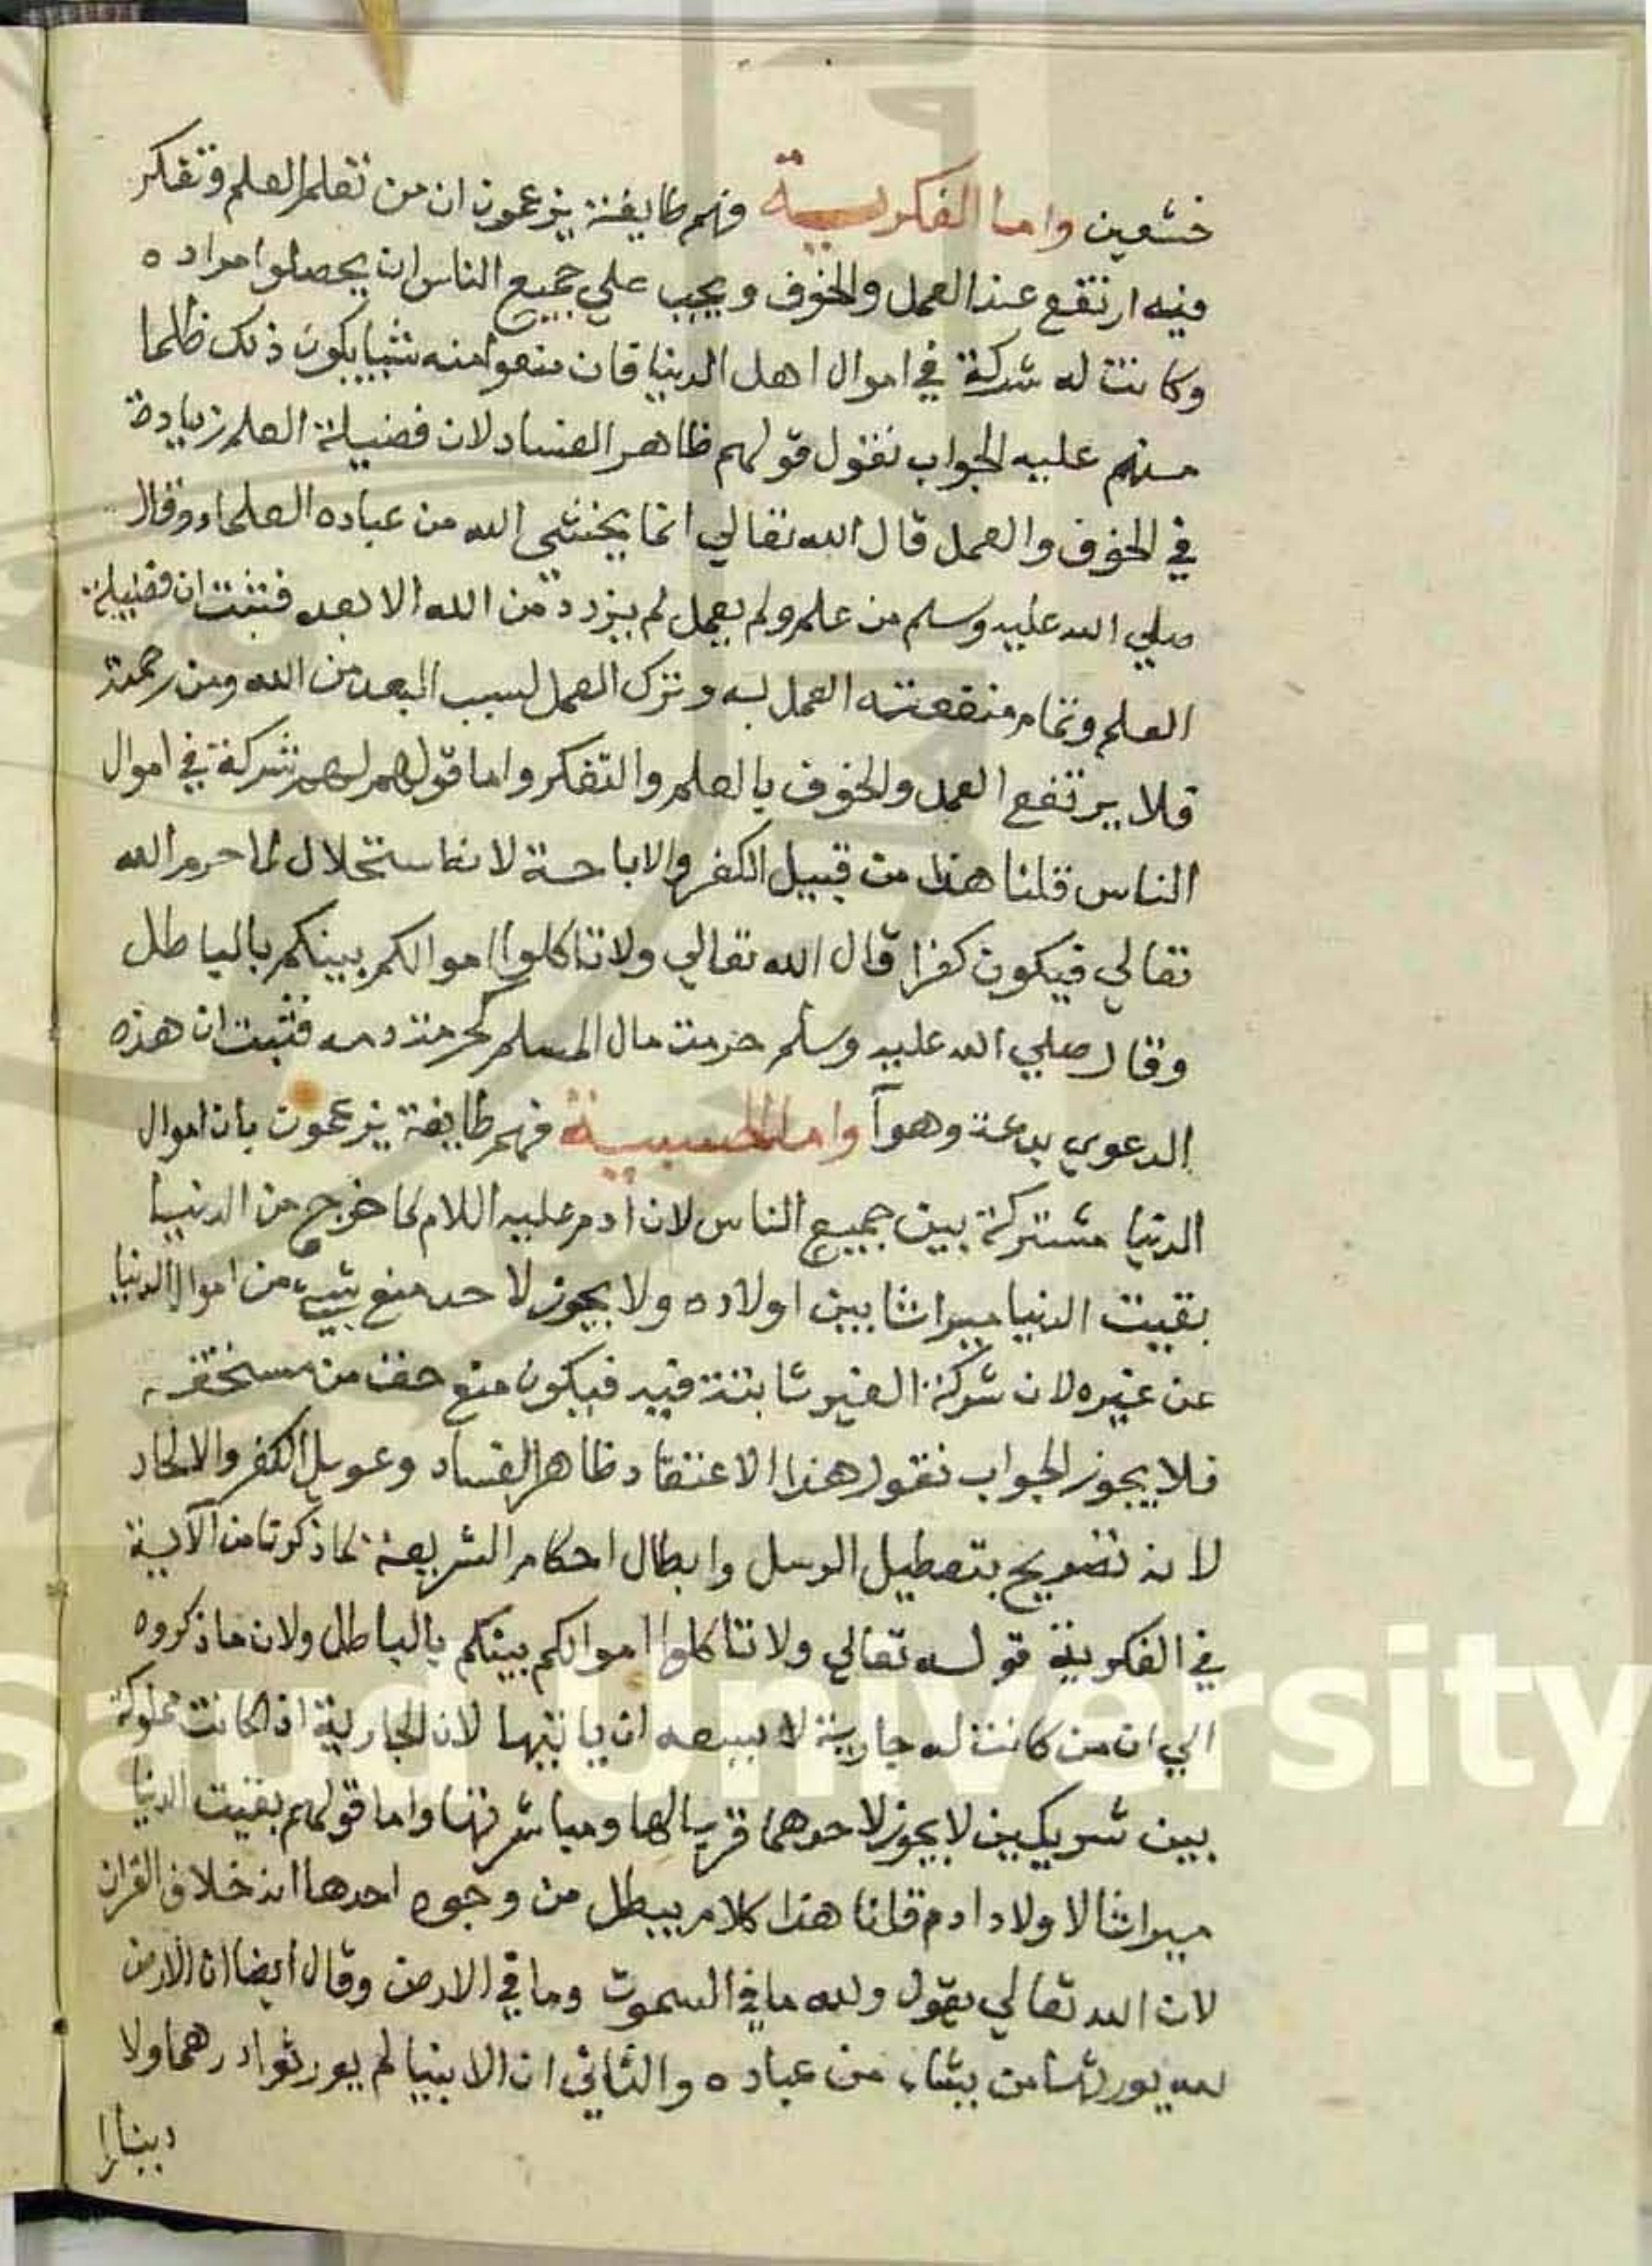 خشعين واما الفكرية فهم طايفة يزعمون ان من تعلم العلم وتفكر
فيه ارتفع عند العمل والخوف ويجب علي جميع الناس ان يحصلوا مراده
وكانت له شركة في اموال اهل الدنيا فان منعوا منه شيا يكون ذلك ظلما
منهم عليه الجواب نقول قولهم ظاهر الفساد لان فضيلة العلم زيادة
في الخوف والعمل قال الله تعالي انما يخشي الله من عباده العلماء وقال
صلي الله عليه وسلم من علم ولم يعمل لم يزدد من الله الا بعد فثبت ان فضيلة
العلم وتمام منفعته العمل به وترك العمل لسبب البعد من الله ومن رحمة
فلا يرتفع العمل والخوف بالعلم والتفكر واما قولهم لهم شركة في اموال
الناس قلنا هذا من قبيل الكفر والاباحة لانه استحلال لما حرم الله
تعالي فيكون كفرا قال الله تعالي ولا تاكلوا اموالكم بينكم بالباطل
وقال صلي الله عليه وسلم حرمت مال المسلم كحرمة دمه فثبت ان هذه
الدعوي بدعة وهوآ واما الحسبية فهم طايفة يزعمون بان اموال
الدنيا مشتركة بين جميع الناس لان ادم عليه اللام لما خرج من الدنيا
بقيت الدنيا ميراثا بين اولاده ولا يجوز لاحد منع شيء من اموال الدنيا
عن غيره لان شركة الغير ثابتة فيه فيكون منع حق من مستحقه
فلا يجوز الجواب نقول هذا الاعتقاد ظاهر الفساد وعويل الكفر والالحاد
لانه تصريح بتعطيل الرسل وابطال احكام الشريعة لما ذكرنا من الآية
في الفكرية قوله تعالي ولا تاكلوا اموالكم بينكم بالباطل ولان ما ذكروه
الي ان من كانت له جارية لا يسعه ان ياتيها لان الجارية اذا كانت مملوكة
بين شريكين لا يجوز لاحدهما قربالها ومباشرتها واما قولهم بقيت الدنيا
ميراثا لاولاد ادم قلنا هذا كلام يبطل من وجوه احدها انه خلاف القران
لان الله تعالي يقول ولله ما في السموت وما في الارض وقال ايضا ان الارض
لله يورثها من يشاء من عباده والثاني ان الانبيا لم يورثوا درهما ولا
دينارا
Saud University